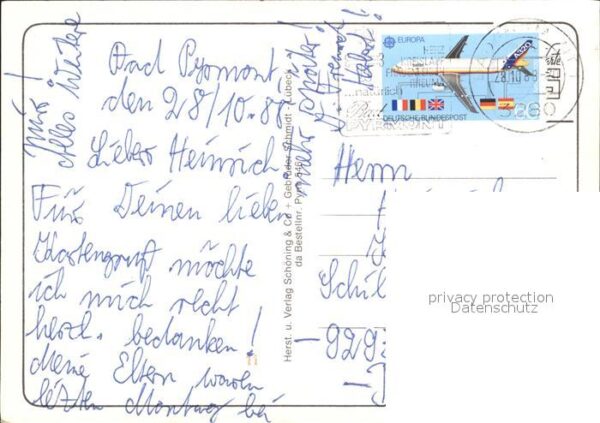 Bad Pyrmont,
den 28/10.88
Lieber Heinrich!
Für Deinen lieben
Kartengruß möchte
ich mich recht
herzl. bedanken!
Meine Eltern waren
letzten Montag bei
mir!
Alles Weitere
mehr später!
Freund
Herst. u. Verlag Schöning & Co + Gebrüder Schmidt · Lübeck
da Bestellnr. Pyrm
EUROPA
DEUTSCHE BUNDESPOST
natürlich
Bad
PYRMONT
28.10.88
3280
Herrn
Schül
- 929
privacy protection
Datenschutz